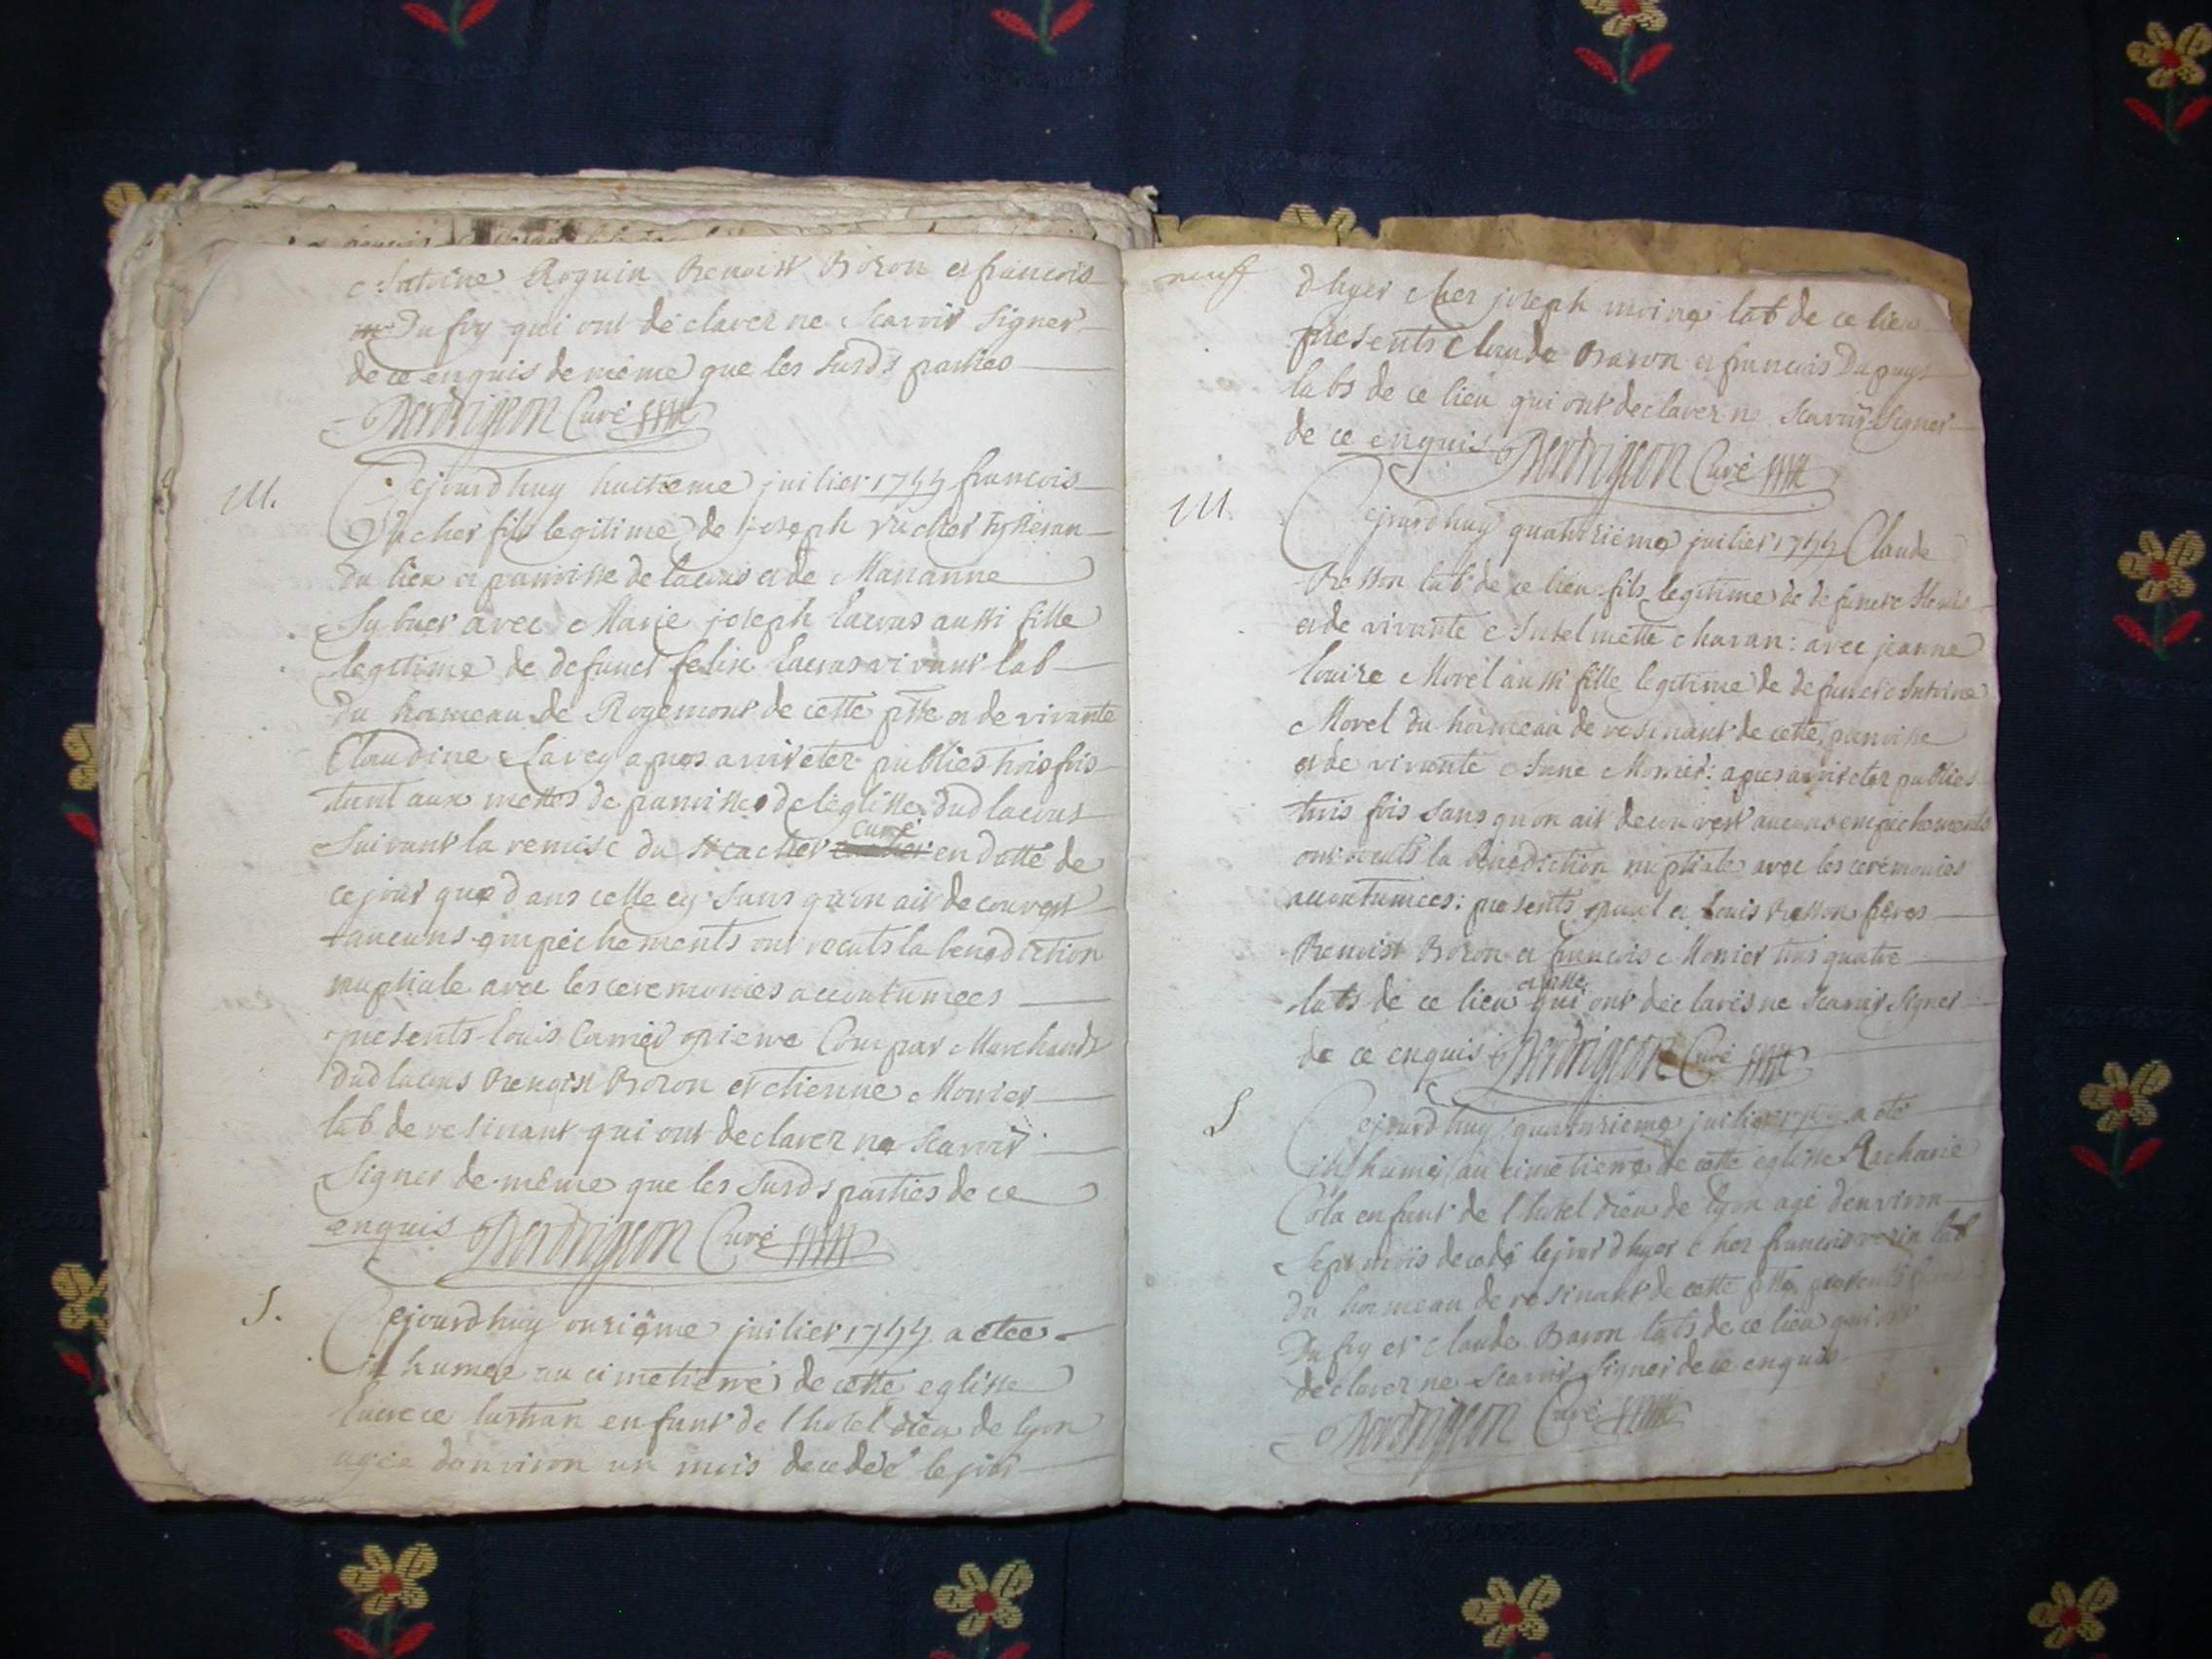 Antoine Roguin Benoist Boron et francois
Dufry qui ont déclarez ne scavoir signer
de ce enquis de même que les susds parties
Curé
M.
Cejourdhuy huitieme juilier 1744 francois
Vacher fils legitime de joseph vacher tysseran
du lieu et paroisse de lacous et de Marianne
avec Marie joseph lacous aussi fille
legitime de defunct felix lacous vivant lab
du hameau de Rogemont de cette psse et de vivante
Claudine apres avoir eter publies trois fois
tant aux messes de paroisse de leglisse dud lacous
suivant la remise du sr cacher curé en datte de
ce jour que dans celle cy sans quon ait decouvert
aucuns empêchements ont recuts la benediction
nuptiale avec les ceremonies accoutumees
presents louis pierre Compar Marchands
dud lacous Benoist Boron et etienne Monier
lab de resinant qui ont declarez ne scavoir
signer de même que les susds parties de ce
enquis Curé
S.
Cejourdhuy onziême juilier 1744 a etee
inhumee au cimetierre de cette eglisse
lucrece enfant de lhotel dieu de lyon
agée denviron un mois decedéé le jour
neuff
dhyer chez joseph moine lab de ce lieu
presents Claude Baron et francois Dupuys
labs de ce lieu qui ont declarez ne scavoir signer
de ce enquis Curé
M.
Cejourdhuy quatorziême juilier 1744 Claude
Besson lab de ce lieu fils legitime de defunct
et de vivante Antelmette charan: avec jeanne
louise Morel aussi fille legitime de defunct Antoine
Morel du hameau de resinant de cette paroisse
et de vivante Anne Monier: apres avoir eter publies
trois fois sans quon ait decouvert aucuns empêchements
ont recuts la benediction nuptiale avec les ceremonies
accoutumees: presents paul et louis Besson freres
Benoist Boron et francois Monier tous quatre
labs de ce lieu qui ont déclarés ne scavoir signer
de ce enquis Curé
S
Cejourdhuy quatorzieme juilier 1744 a eté
inhumé au cimetierre de cette eglisse Zacharie
Cola enfant de lhotel dieu de lyon agé denviron
sept mois decedé le jour dhyer chez francois lab
du hameau de resinant de cette psse presents
Dufry et Claude Baron labs de ce lieu qui ont
déclarez ne scavoir signer de ce enquis
Curé